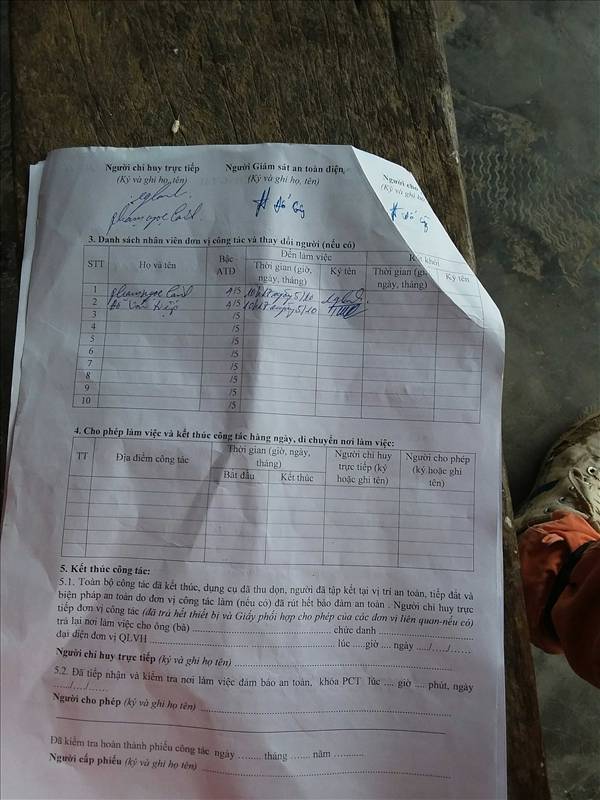 Người chỉ huy trực tiếp Người Giám sát an toàn điện Người cho
(Ký và ghi họ, tên) (Ký và ghi họ, tên) (Ký và ghi
Đỗ
phạm ngọc
3. Danh sách nhân viên đơn vị công tác và thay đổi người (nếu có)
STT Họ và tên Bậc ATĐ Đến làm việc Rút khỏi
Thời gian (giờ, ngày, tháng) Ký tên Thời gian (giờ ngày, tháng) Ký tên
1 phạm ngọc 4/5 ngày 5/10
2 Đỗ Văn Hiệp 4/5 ngày 5/10
3 /5
4 /5
5 /5
6 /5
7 /5
8 /5
9 /5
10 /5
4. Cho phép làm việc và kết thúc công tác hàng ngày, di chuyển nơi làm việc:
TT Địa điểm công tác Thời gian (giờ, ngày, tháng) Người chỉ huy trực tiếp (ký hoặc ghi tên) Người cho phép (ký hoặc ghi tên)
Bắt đầu Kết thúc
5. Kết thúc công tác:
5.1. Toàn bộ công tác đã kết thúc, dụng cụ đã thu dọn, người đã tập kết tại vị trí an toàn, tiếp đất và
biện pháp an toàn do đơn vị công tác làm (nếu có) đã rút hết bảo đảm an toàn . Người chỉ huy trực
tiếp đơn vị công tác (đã trả hết thiết bị và Giấy phối hợp cho phép của các đơn vị liên quan-nếu có)
trả lại nơi làm việc cho ông (bà) ........ chức danh ........
đại diện đơn vị QLVH ........ lúc ...giờ .... ngày ..../..../......
Người chỉ huy trực tiếp (ký và ghi họ tên) ........
5.2. Đã tiếp nhận và kiểm tra nơi làm việc đảm bảo an toàn, khóa PCT lúc .... giờ .... phút, ngày
...../..../......
Người cho phép (ký và ghi họ tên) ........
Đã kiểm tra hoàn thành phiếu công tác ngày ....... tháng ...... năm ..........
Người cấp phiếu (ký và ghi họ tên) ........